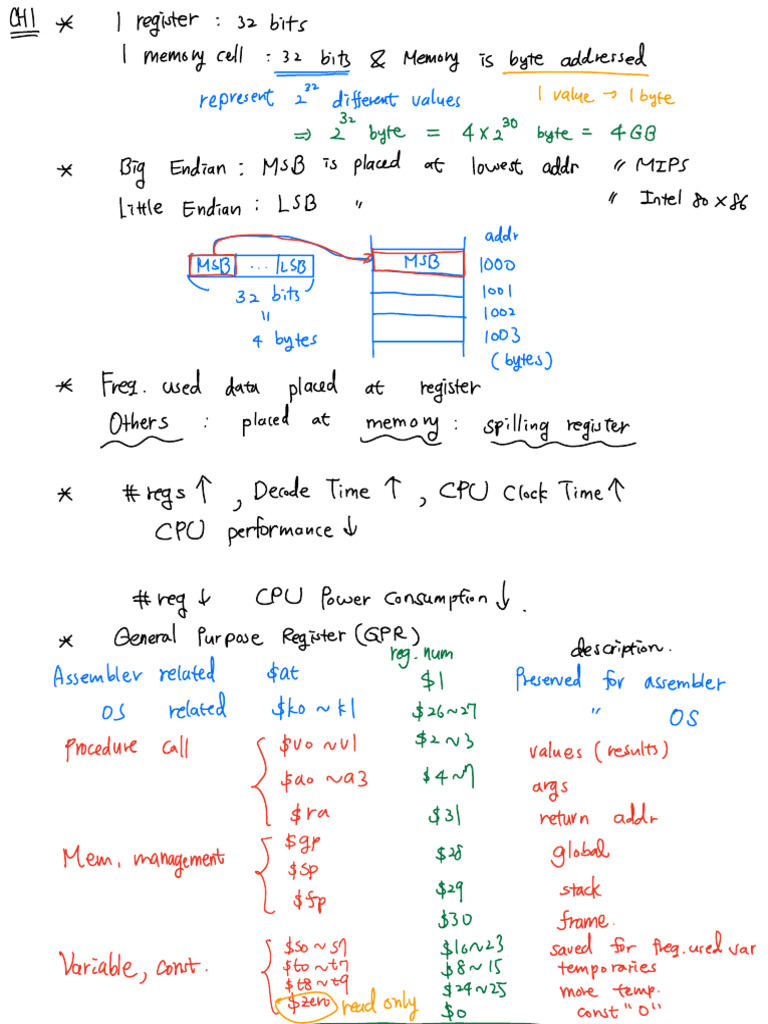 CH1 * 1 register : 32 bits
1 memory cell : 32 bits & Memory is byte addressed
represent 2^32 different values 1 value → 1 byte
⇒ 2^32 byte = 4 × 2^30 byte = 4GB
* Big Endian : MSB is placed at lowest addr " MIPS
Little Endian : LSB " " Intel 80x86
addr
MSB ... LSB MSB 1000
32 bits 1001
" 1002
4 bytes 1003
(bytes)
* Freq. used data placed at register
Others : placed at memory : spilling register
* # regs ↑ , Decode Time ↑ , CPU Clock Time ↑
CPU performance ↓
# reg ↓ CPU Power Consumption ↓.
* General Purpose Register (GPR)
reg. num description.
Assembler related $at $1 Preserved for assembler
OS related $k0 ~ k1 $26~27 " OS
Procedure call $v0 ~ v1 $2 ~ 3 values (results)
$a0 ~ a3 $4 ~ 7 args
$ra $31 return addr
Mem. management $gp $28 global
$sp $29 stack
$fp $30 frame.
Variable, const. $s0 ~ s7 $16~23 saved for freq. used var
$t0 ~ t7 $8 ~ 15 temporaries
$t8 ~ t9 $24~25 more temp.
$zero read only $0 const "0"